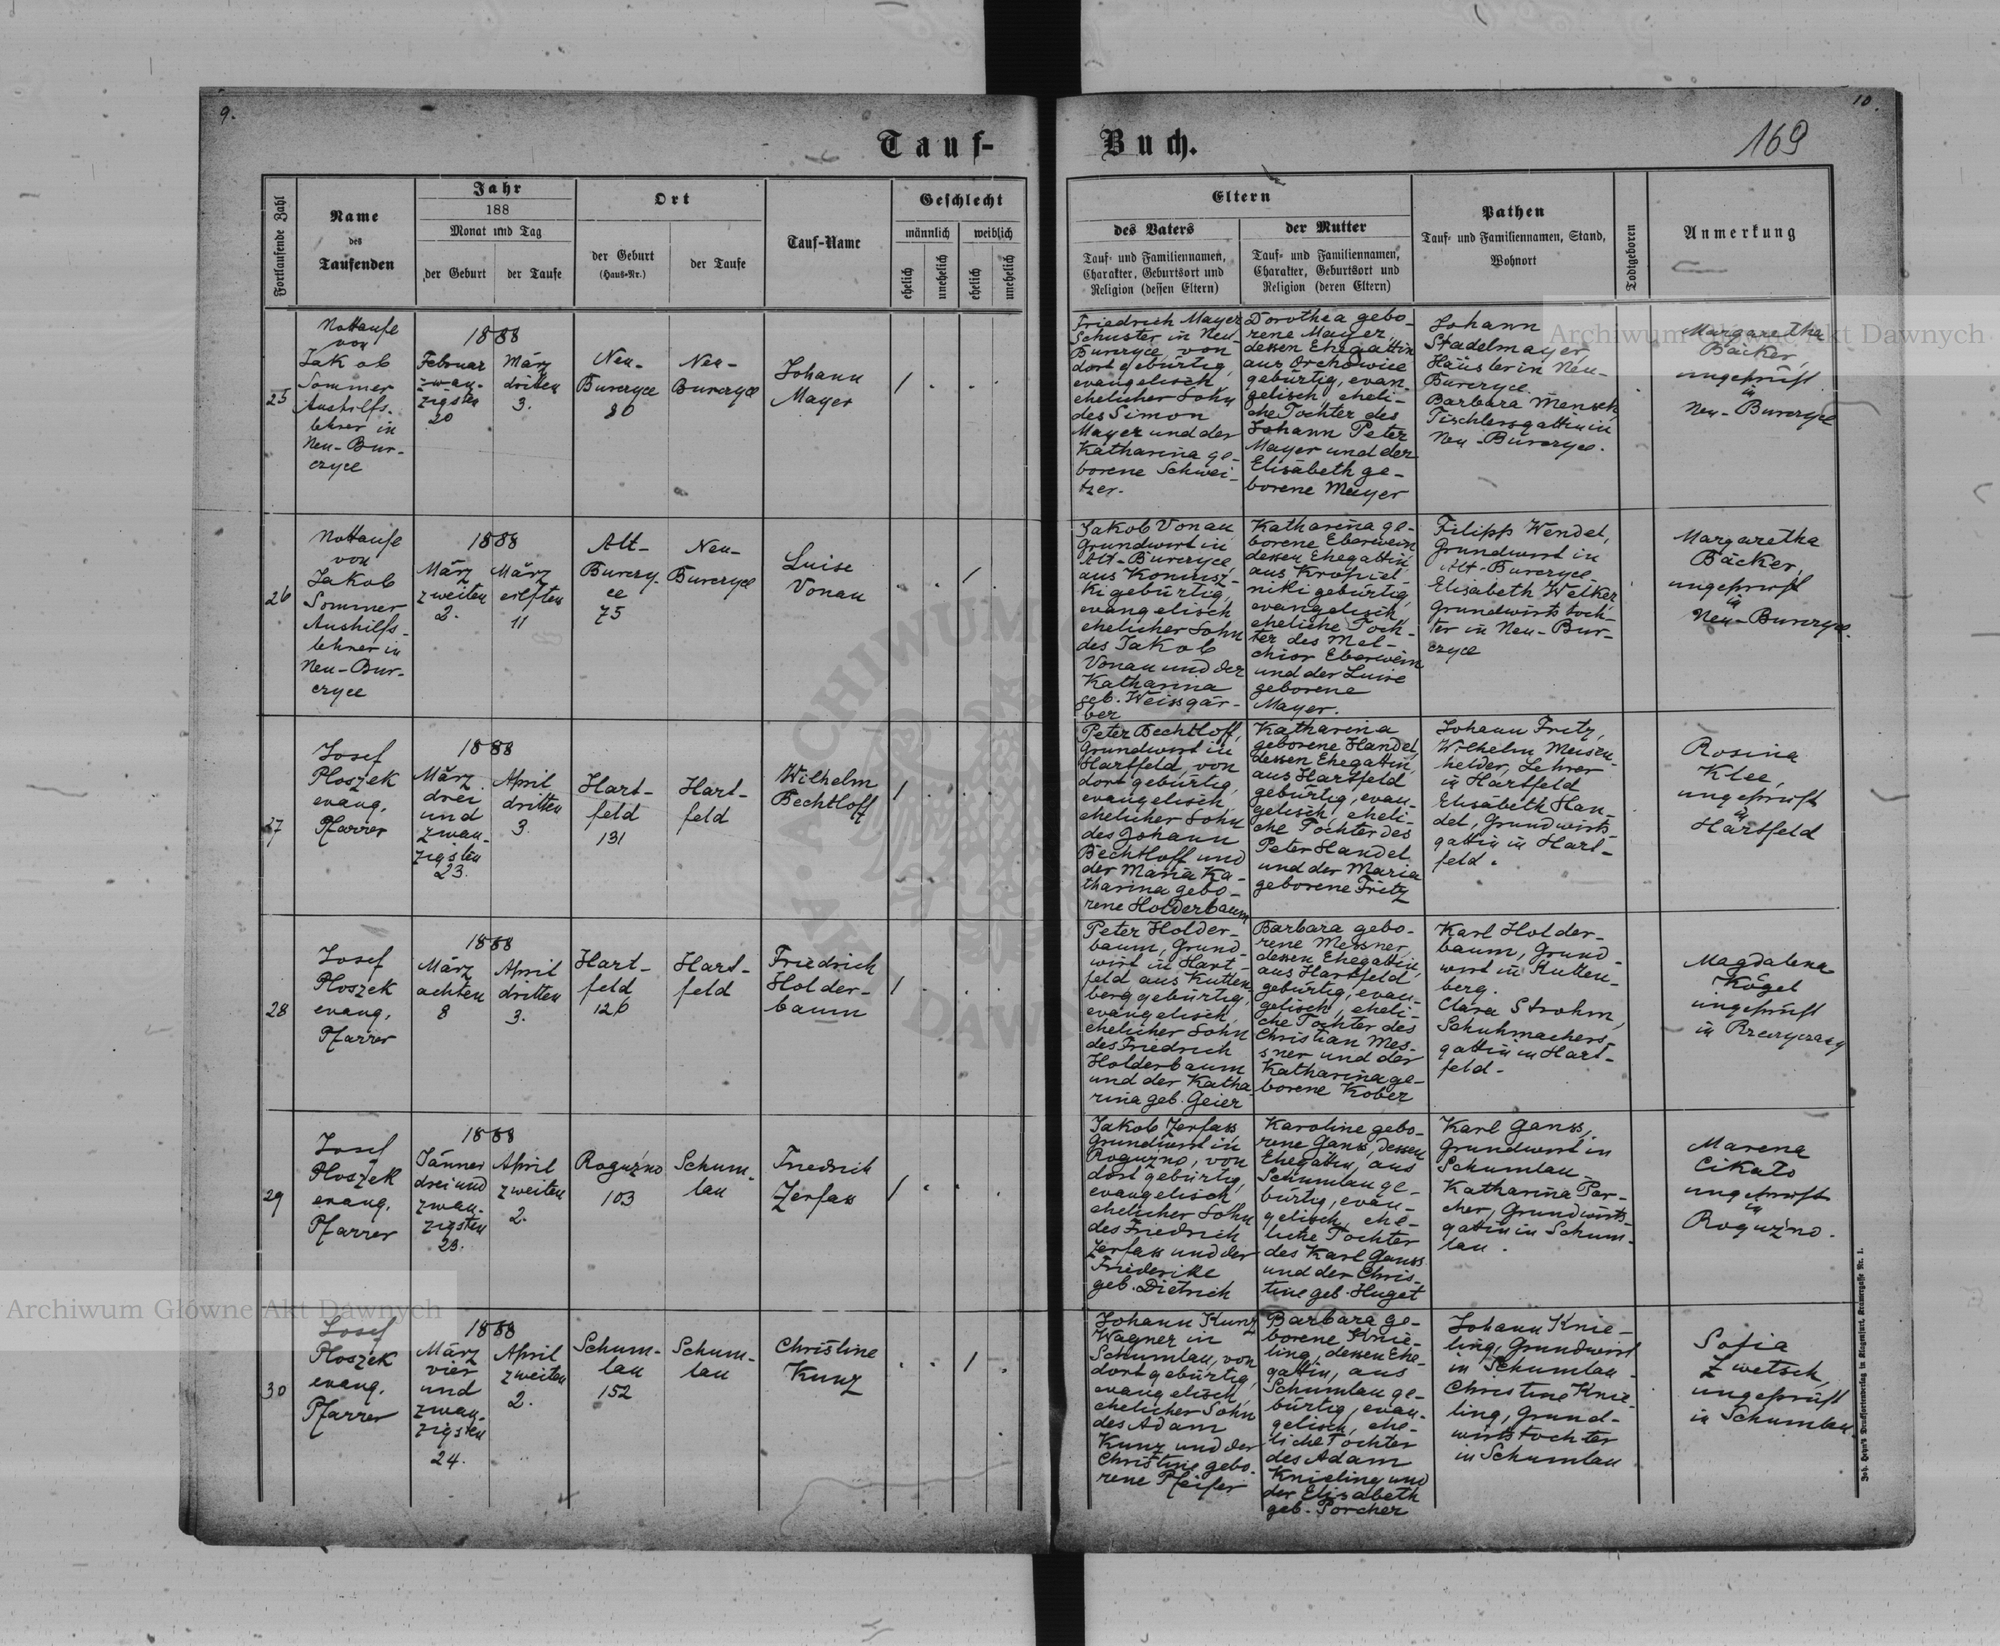 9.
10.
Tauf-
Buch.
169
Fortlaufende Zahl
Name
des
Taufenden
Jahr
188
Monat und Tag
der Geburt
der Taufe
Ort
der Geburt
(Haus-Nr.)
der Taufe
Tauf-Name
Geschlecht
männlich
weiblich
ehelich
unehelich
ehelich
unehelich
Eltern
des Vaters
Tauf- und Familiennamen,
Charakter, Geburtsort und
Religion (dessen Eltern)
der Mutter
Tauf- und Familiennamen,
Charakter, Geburtsort und
Religion (deren Eltern)
Pathen
Tauf- und Familiennamen, Stand,
Wohnort
Todtgeboren
Anmerkung
25
Nottaufe
von
Jakob
Sommer
Aushilfs-
lehrer in
Neu-Bur-
czyce
1888
Februar
zwan-
zigsten
20
März
dritten
3.
Neu-
Burczyce
80
Neu-
Burczyce
Johann
Mayer
/
Friedrich Mayer
Schuster in Neu-
Burczyce, von
dort gebürtig,
evangelisch
ehelicher Sohn
des Simon
Mayer und der
Katharina ge-
borene Schwei-
tzer.
Dorothea gebo-
rene Mayer
dessen Ehegattin
aus Orchowice
gebürtig, evan-
gelisch, eheli-
che Tochter des
Johann Peter
Mayer und der
Elisabeth ge-
borene Mayer
Johann
Stadelmayer,
Häusler in Neu-
Burczyce.
Barbara Mensch,
Tischlersgattin in
Neu-Burczyce.
Margaretha
Bäcker,
ungeprüft
in
Neu-Burczyce
26
Nottaufe
von
Jakob
Sommer
Aushilfs-
lehrer in
Neu-Bur-
czyce
1888
März
zweiten
2.
März
eilften
11
Alt-
Burczy-
ce
75
Neu-
Burczyce
Luise
Vonau
/
Jakob Vonau
Grundwirt in
Alt-Burczyce,
aus Koniusz-
ki gebürtig,
evangelisch
ehelicher Sohn
des Jakob
Vonau und der
Katharina
geb. Weissgär-
ber
Katharina ge-
borene Eberwein
dessen Ehegattin,
aus Kropiel-
niki gebürtig,
evangelisch,
eheliche Toch-
ter des Mel-
chior Eberwein
und der Luise
geborene
Mayer.
Filipp Wendel,
Grundwirt in
Alt-Burczyce
Elisabeth Welker
Grundwirts toch-
ter in Neu-Bur-
czyce
Margaretha
Bäcker,
ungeprüft
in
Neu-Burczyce.
27
Josef
Ploszek
evang.
Pfarrer
1888
März
drei
und
zwan-
zigsten
23.
April
dritten
3.
Hart-
feld
131
Hart-
feld
Wilhelm
Bechtloff
/
Peter Bechtloff,
Grundwirt in
Hartfeld, von
dort gebürtig,
evangelisch,
ehelicher Sohn
des Johann
Bechtloff und
der Maria Ka-
tharina gebo-
rene Holderbaum
Katharina
geborene Handel,
dessen Ehegattin,
aus Hartfeld
gebürtig, evan-
gelisch, eheli-
che Tochter des
Peter Handel
und der Maria
geborene Fritz
Johann Fritz,
Wilhelm Meisen-
helder, Lehrer
in Hartfeld
Elisabeth Han-
del, Grundwirts-
gattin in Hart-
feld.
Rosina
Klee,
ungeprüft
in
Hartfeld
28
Josef
Ploszek
evang.
Pfarrer
1888
März
achten
8
April
dritten
3.
Hart-
feld
126
Hart-
feld
Friedrich
Holder-
baum
/
Peter Holder-
baum, Grund-
wirt in Hart-
feld aus Kutten-
berg gebürtig,
evangelisch,
ehelicher Sohn
des Friedrich
Holderbaum
und der Katha-
rina geb. Geier
Barbara gebo-
rene Messner,
dessen Ehegattin,
aus Hartfeld
gebürtig, evan-
gelisch, eheli-
che Tochter des
Christian Mes-
sner und der
Katharina ge-
borene Kober
Karl Holder-
baum, Grund-
wirt in Kutten-
berg.
Clara Strohm,
Schuhmachers-
gattin in Hart-
feld.
Magdalena
Kögel
ungeprüft
in
29
Josef
Ploszek
evang.
Pfarrer
1888
Jänner
drei und
zwan-
zigsten
23.
April
zweiten
2.
Roguźno
103
Schum-
lau
Friedrich
Zerfass
/
Jakob Zerfass
Grundwirt in
Roguźno, von
dort gebürtig,
evangelisch
ehelicher Sohn
des Friedrich
Zerfass und der
Friederike
geb. Dietrich
Karoline gebo-
rene Ganss, dessen
Ehegattin, aus
Schumlau ge-
bürtig, evan-
gelisch, ehe-
liche Tochter
des Karl Ganss
und der Chris-
tine geb. Huget
Karl Ganss,
Grundwirt in
Schumlau-
Katharina Por-
cher, Grundwirts-
gattin in Schum-
lau.
Marena
Cikało
ungeprüft
in
Roguźno.
30
Josef
Ploszek
evang.
Pfarrer
1888
März
vier
und
zwan-
zigsten
24.
April
zweiten
2.
Schum-
lau
152
Schum-
lau
Christine
Kunz
/
Johann Kunz
Wagner in
Schumlau, von
dort gebürtig,
evangelisch,
ehelicher Sohn
des Adam
Kunz und der
Christine gebo-
rene Pfeifer
Barbara ge-
borene Knie-
ling, dessen Ehe-
gattin, aus
Schumlau ge-
bürtig, evan-
gelisch, ehe-
liche Tochter
des Adam
Knieling und
der Elisabeth
geb. Porcher
Johann Knie-
ling, Grundwirt
in Schumlau-
Christine Knie-
ling, Grund-
wirtstochter
in Schumlau
Sofia
Zwetsch,
ungeprüft
in Schumlau
Joh. Heyn's Drucksortenverlag in Klagenfurt, Kramergasse Nr. 1.
Archiwum Główne Akt Dawnych
Archiwum Główne Akt Dawnych